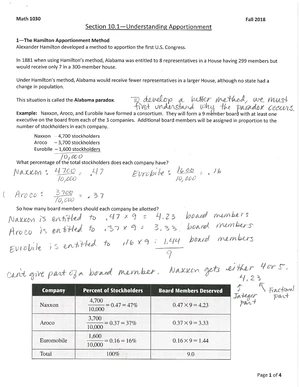 Math 1030 Fall 2018
Section 10.1—Understanding Apportionment
1—The Hamilton Apportionment Method
Alexander Hamilton developed a method to apportion the first U.S. Congress.
In 1881 when using Hamilton's method, Alabama was entitled to 8 representatives in a House having 299 members but
would receive only 7 in a 300-member house.
Under Hamilton's method, Alabama would receive fewer representatives in a larger House, although no state had a
change in population.
This situation is called the Alabama paradox. To develop a better method, we must
first understand why the paradox occurs.
Example: Naxxon, Aroco, and Eurobile have formed a consortium. They will form a 9 member board with at least one
executive on the board from each of the 3 companies. Additional board members will be assigned in proportion to the
number of stockholders in each company.
Naxxon - 4,700 stockholders
Aroco - 3,700 stockholders
Eurobile - 1,600 stockholders
10,000
What percentage of the total stockholders does each company have?
Naxxon: 4700/10,000 = .47 Eurobile: 1600/10,000 = .16
Aroco: 3700/10,000 = .37
So how many board members should each company be allotted?
Naxxon is entitled to .47 x 9 = 4.23 board members
Aroco is entitled to .37 x 9 = 3.33 board members
Eurobile is entitled to .16 x 9 = 1.44 board members
9
Can't give part of a board member. Naxxon gets either 4 or 5.
4.23
Integer part Fractional part
Company Percent of Stockholders Board Members Deserved
Naxxon 4,700/10,000 = 0.47 = 47% 0.47 × 9 = 4.23
Aroco 3,700/10,000 = 0.37 = 37% 0.37 × 9 = 3.33
Euromobile 1,600/10,000 = 0.16 = 16% 0.16 × 9 = 1.44
Total 100% 9.0
Page 1 of 4